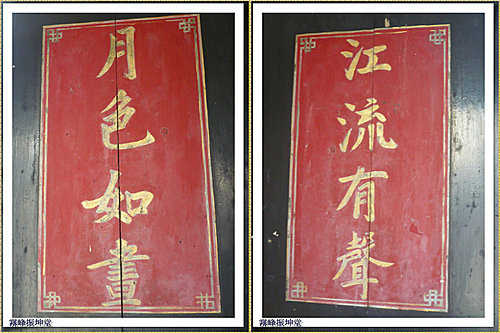 月色如晝
霧峰振坤堂
江流有聲
霧峰振坤堂